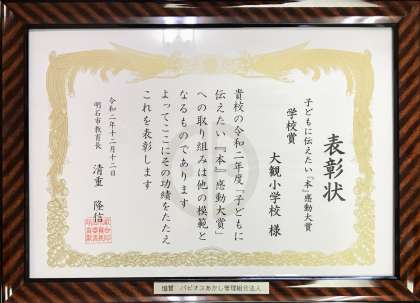 表彰状
子どもに伝えたい『本』感動大賞
学校賞
大観小学校 様
貴校の令和二年度『子どもに
伝えたい『本』感動大賞』
への取り組みは他の模範と
なるものであります
よってここにその功績をたたえ
これを表彰します
令和二年十二月十二日
明石市教育長 清重 隆信
協賛 パピオスあかし管理組合法人